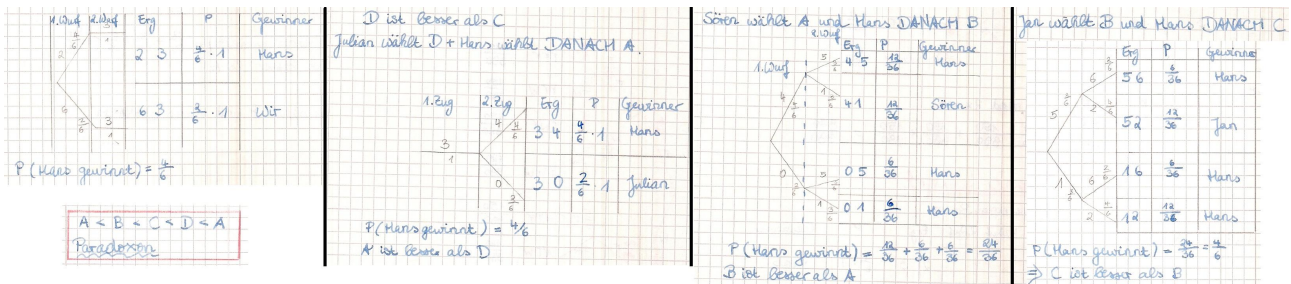 1.Wurf 2.Wurf Erg P Gewinner
4/6 3
2 1
2 3 4/6 · 1 Hans
6 2/6 3 1
6 3 2/6 · 1 Wir
P (Hans gewinnt) = 4/6
A < B < C < D < A
Paradoxon
D ist besser als C
Julian wählt D + Hans wählt DANACH A.
1.Zug 2.Zug Erg P Gewinner
4 4/6 3 4 4/6 · 1 Hans
3
1
0 2/6 3 0 2/6 · 1 Julian
P(Hans gewinnt) = 4/6
A ist besser als D
Sören wählt A und Hans DANACH B
2.Wurf
1.Wurf Erg P Gewinner
5 3/6 4 5 12/36 Hans
4 4/6
1 3/6 4 1 12/36 Sören
0 2/6
5 0 5 6/36 Hans
1 3/6 0 1 6/36 Hans
P (Hans gewinnt) = 12/36 + 6/36 + 6/36 = 24/36
B ist besser als A
Jan wählt B und Hans DANACH C
Erg P Gewinner
6 2/6 5 6 6/36 Hans
5 3/6
2 4/6 5 2 12/36 Jan
1 3/6
6 2/6 1 6 6/36 Hans
2 4/6 1 2 12/36 Hans
P (Hans gewinnt) = 24/36 = 4/6
⇒ C ist besser als B